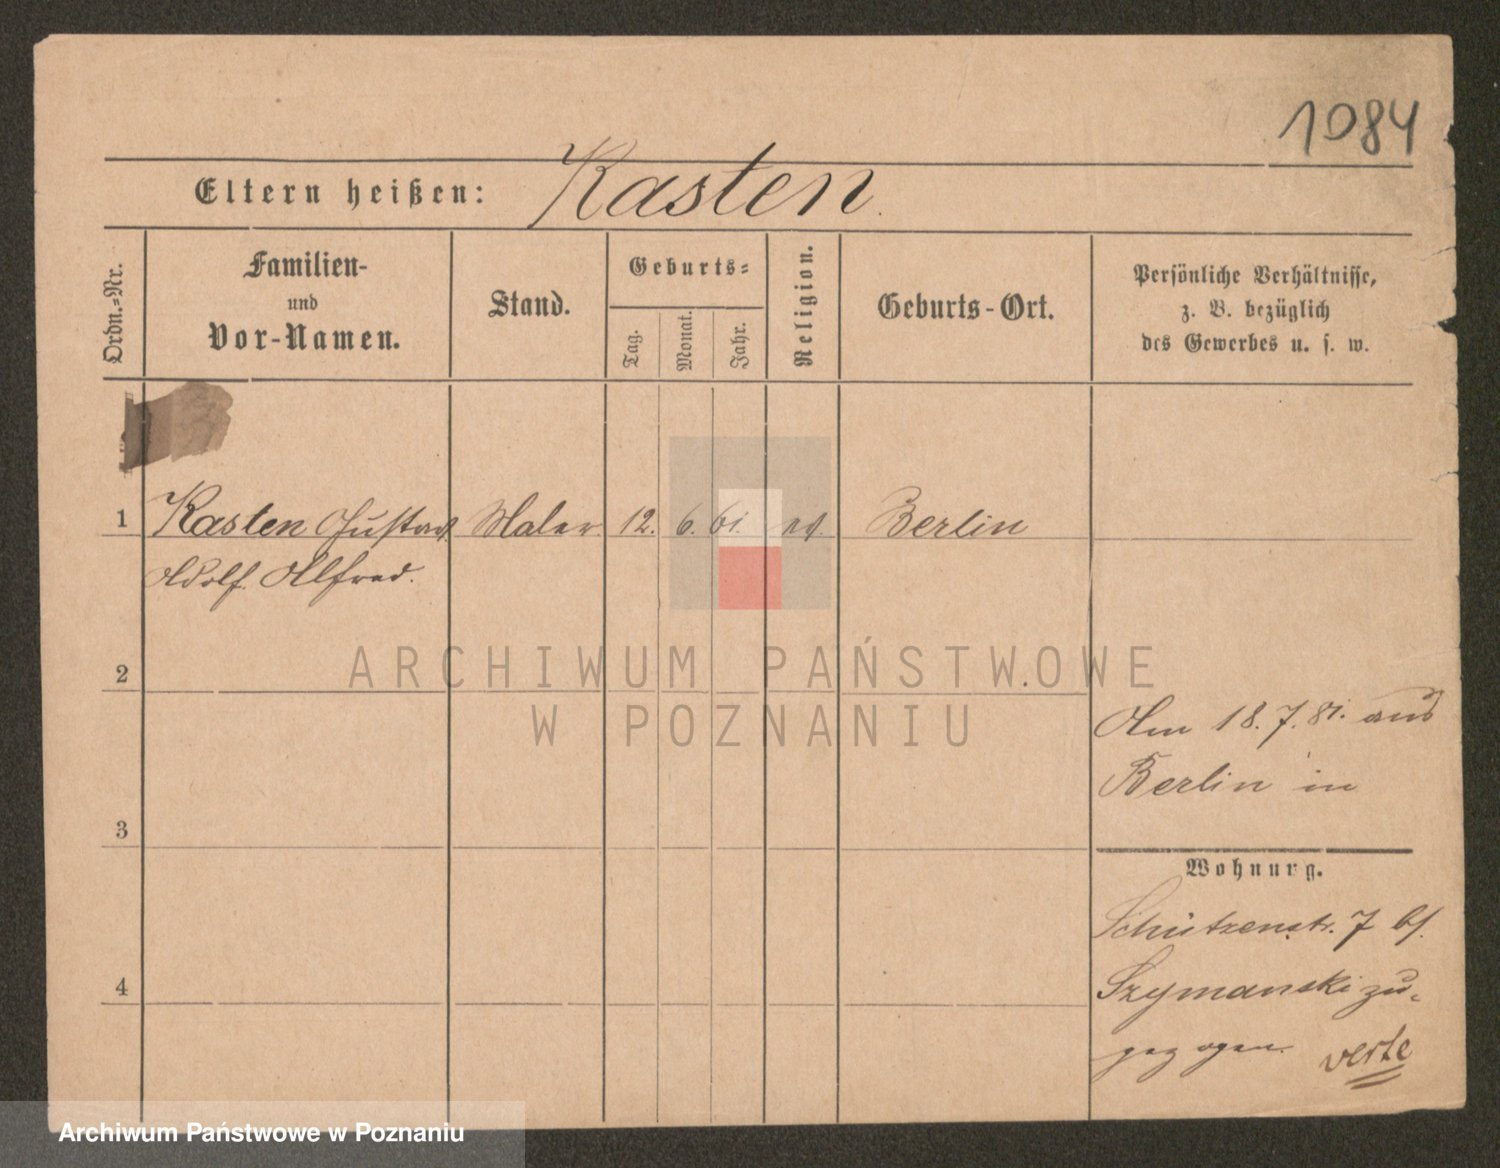 1084
Eltern heißen: Kasten.
Ordn.=Nr.
Familien-
und
Vor-Namen.
Stand.
Geburts=
Tag.
Monat.
Jahr.
Religion.
Geburts-Ort.
Persönliche Verhältnisse,
z. B. bezüglich
des Gewerbes u. s. w.
1 Kasten Gustav Maler. 12. 6. 61. ev. Berlin
Adolf Alfred.
2
3
4
Am 18.7.81. aus
Berlin in
Wohnung.
Schützenstr. 7 bf.
Szymanski zu-
gezogen. verte
ARCHIWUM PAŃSTWOWE
W POZNANIU
Archiwum Państwowe w Poznaniu